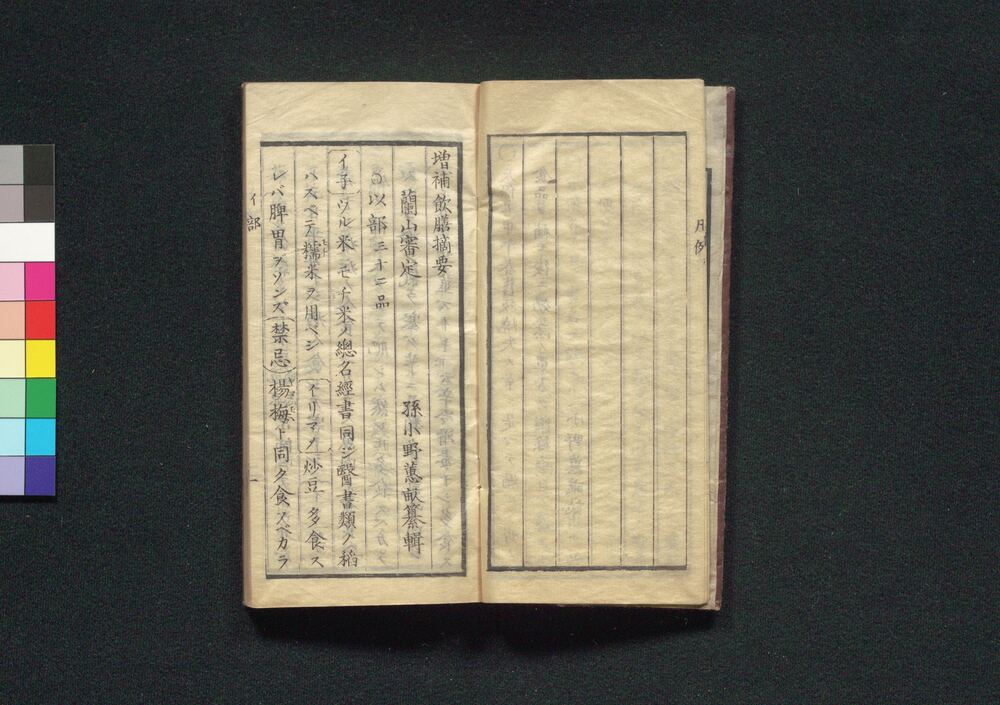 凡例
増補飲膳摘要
蘭山審定 孫小野蕙畝纂輯
○以部三十二品
イ子 ウル米 モチ米ノ總名經書同ジ醫書類ノ稻
ハスベテ糯米ヲ用ベシ イリマメ 炒豆 多食ス
レバ脾胃ヲソンズ 禁忌 楊梅ト同ク食スベカラ
イ部
一